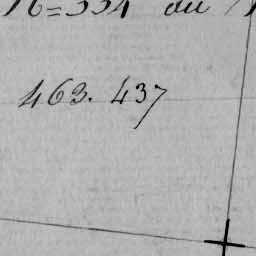 16=334 au
463. 437